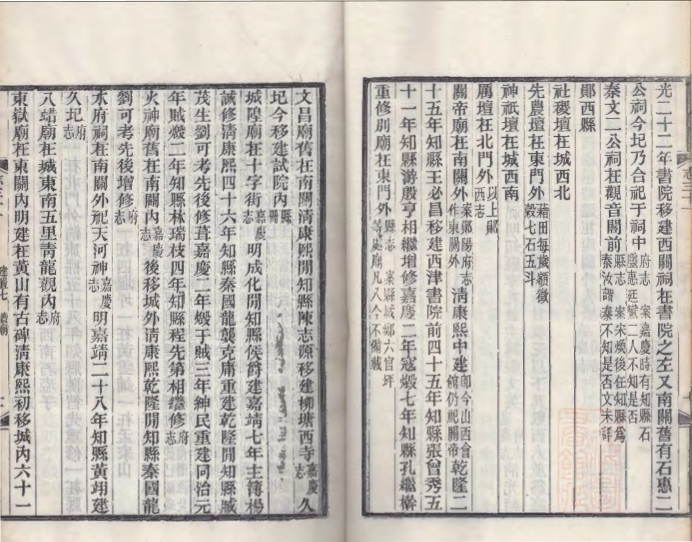 光二十二年書院移建西關祠在書院之左又南關舊有石惠二
公祠今圮乃合祀于祠中府志 案嘉慶時有知縣石蔭惠廷棨二人不知是否
泰文二公祠在觀音閣前縣志 案朱煥後任知縣為秦汝諧秦不知是否文未詳
鄖西縣
社稷壇在城西北
先農壇在東門外藉田每歲額徵穀七石五斗
神祇壇在城西南
厲壇在北門外以上鄖西志
關帝廟在南關外案鄖陽府志作東關外清康熙中建即今山西會館仍祀關帝乾隆二
十五年知縣王必昌移建西津書院前四十五年知縣張曾秀五
十一年知縣游殷亨相繼增修嘉慶二年寇燬七年知縣孔繼檊
重修別廟在東門外縣志 案縣城鄉六官坪等處廟凡八今不備載
文昌廟舊在南關清康熙間知縣陳志源移建柳塘西寺嘉慶志久
圮今移建試院內縣冊
城隍廟在十字街嘉慶志明成化間知縣侯爵建嘉靖七年主簿楊
誠修清康熙四十六年知縣秦國龍襲克庸重建乾隆間知縣臧
茂生劉可考先後修葺嘉慶二年燬于賊三年紳民重建同治元
年賊燬二年知縣林瑞枝四年知縣程光第相繼修府志
火神廟舊在南關內嘉慶志後移城外清康熙乾隆間知縣秦國龍
劉可考先後增修府志
水府祠在南關外祀天河神嘉慶志明嘉靖二十八年知縣黃翊建
久圮府志
八蜡廟在城東南五里青龍觀內府志
東嶽廟在東關內明建在黃山有古碑清康熙初移城內六十一